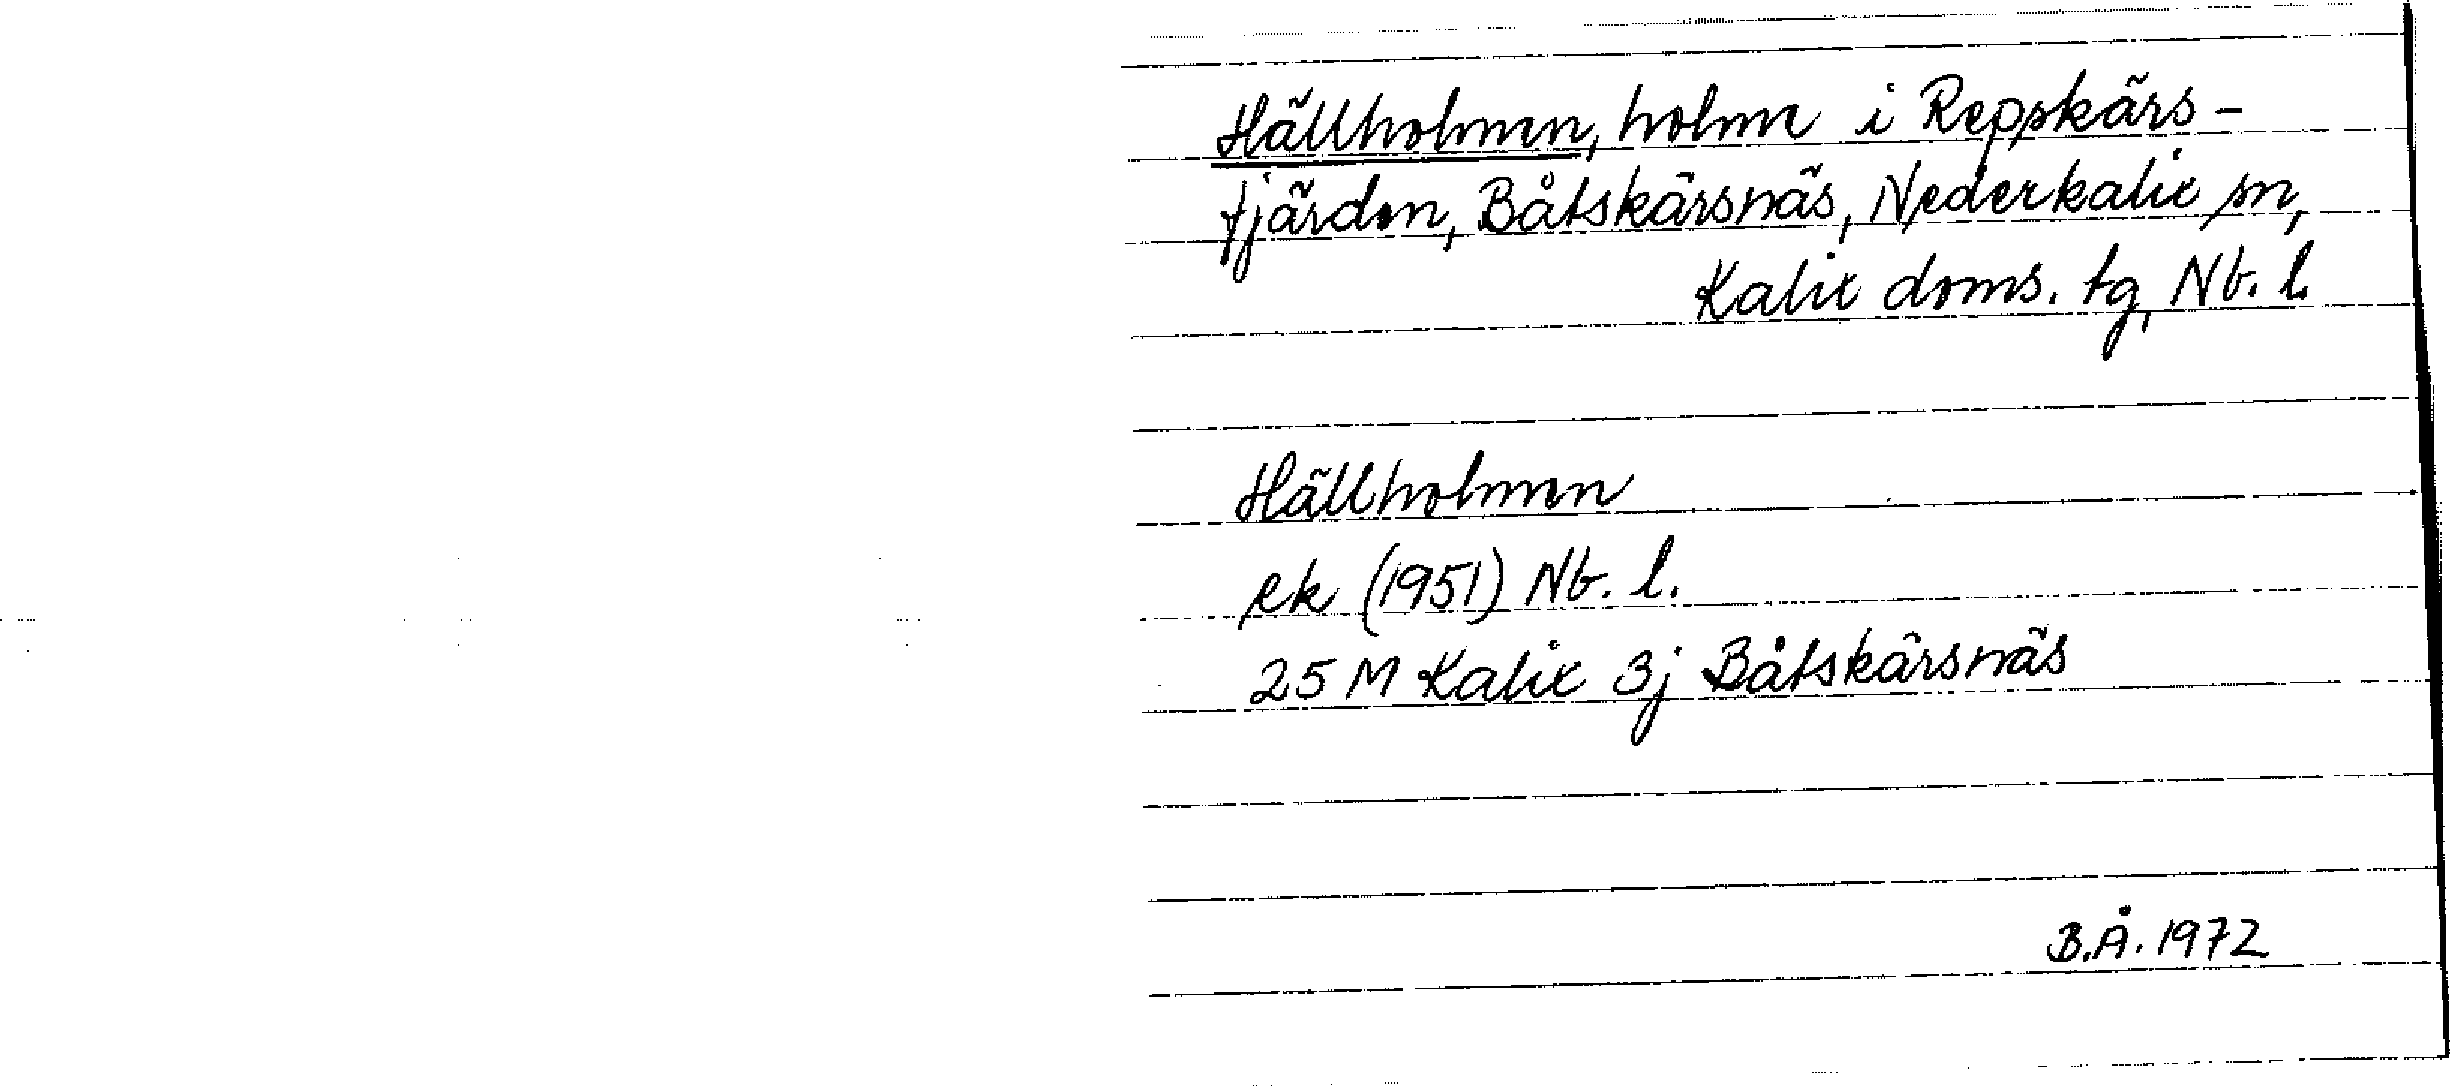 Hällholmen, holme i Reppskärs-
fjärden, Båtskärsnäs, Nederkalix sn,
Kalix doms. tg, Nb. l.
Hällholmen
ek (1951) Nb. l.
25 M Kalix 3j Båtskärsnäs
B.Å. 1972